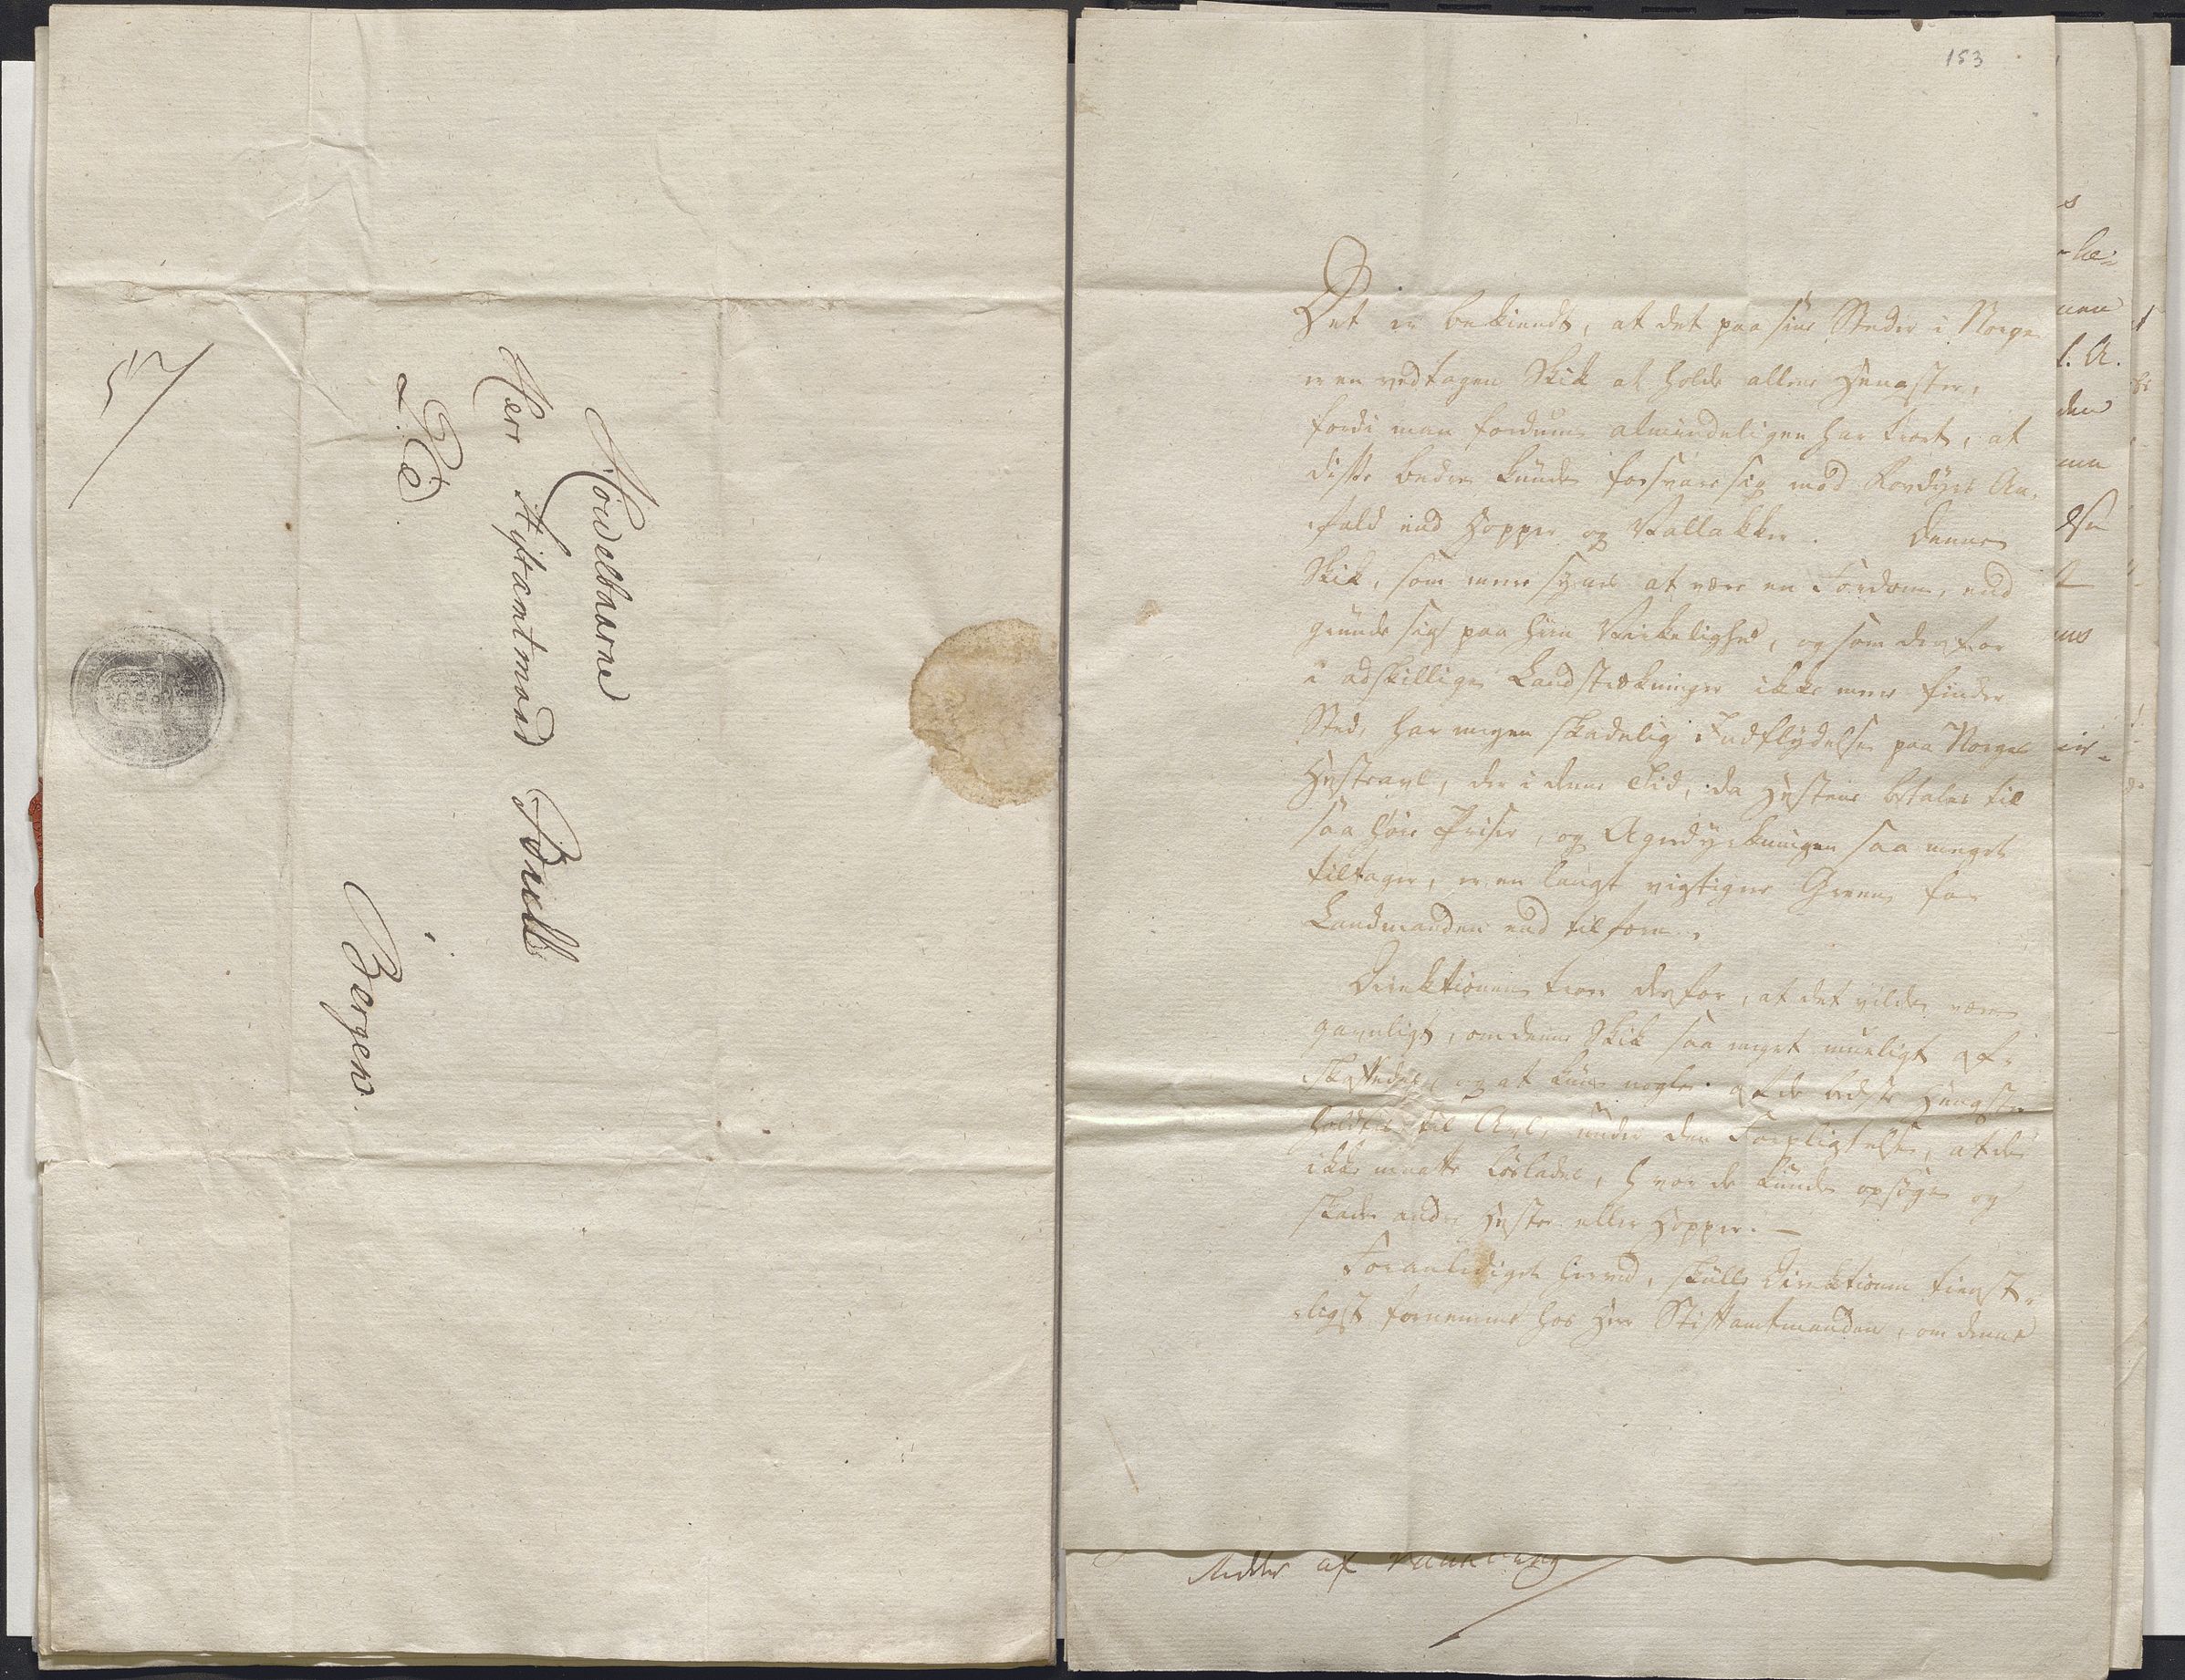 Høivelbaarne
Herr Stiftamtmand Bull
R. e
Bergen.
153
Det er bekiendt, at det paa sine Steder i Norge
er en vedtagen Skik at holde allene Hengster,
fordi man fordum almindeligen har troet, at
disse bedre kunde forsvare sig mod Rovdyrs An-
fald end Hopper og Vallakker. Denne
Skik, som mere synes at være en Fordom, end
grunde sig paa Virkelighed, og som derfor
i adskillige Landstrækninger ikke mere finder
Sted, har megen skadelig Indflydelse paa Norges
Hesteavl, der i denne Tid, da Hestene betales til
saa høie Priser, og Agerdyrkningen saa meget
tiltager, er en langt vigtigere Green for
Landmanden end tilforn.
Direktionen troer derfor, at det vilde være
gavnligt, om denne Skik saa meget mueligt af-
skaffedes og at kun nogle af de bedste Hengster
holdtes til Avl, under den Forpligtelse, at de
ikke maatte løslades, hvor de kunde opsøge og
skade andre Heste eller Hopper. —
Foranlediget herved, skulle Direktionen tienst-
ligst fornemme hos Herr Stiftamtmanden, om denne
Ridder af